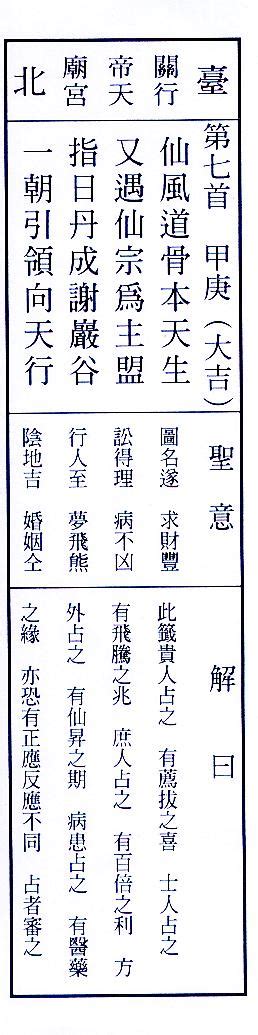 臺北
關帝廟
行天宮
第七首 甲庚(大吉)
仙風道骨本天生
又遇仙宗為主盟
指日丹成謝巖谷
一朝引領向天行
聖意
圖名遂 求財豐
訟得理 病不凶
行人至 夢飛熊
陰地吉 婚姻仝
解曰
此籤貴人占之 有薦拔之喜 士人占之
有飛騰之兆 庶人占之 有百倍之利 方
外占之 有仙昇之期 病患占之 有醫藥
之緣 亦恐有正應反應不同 占者審之